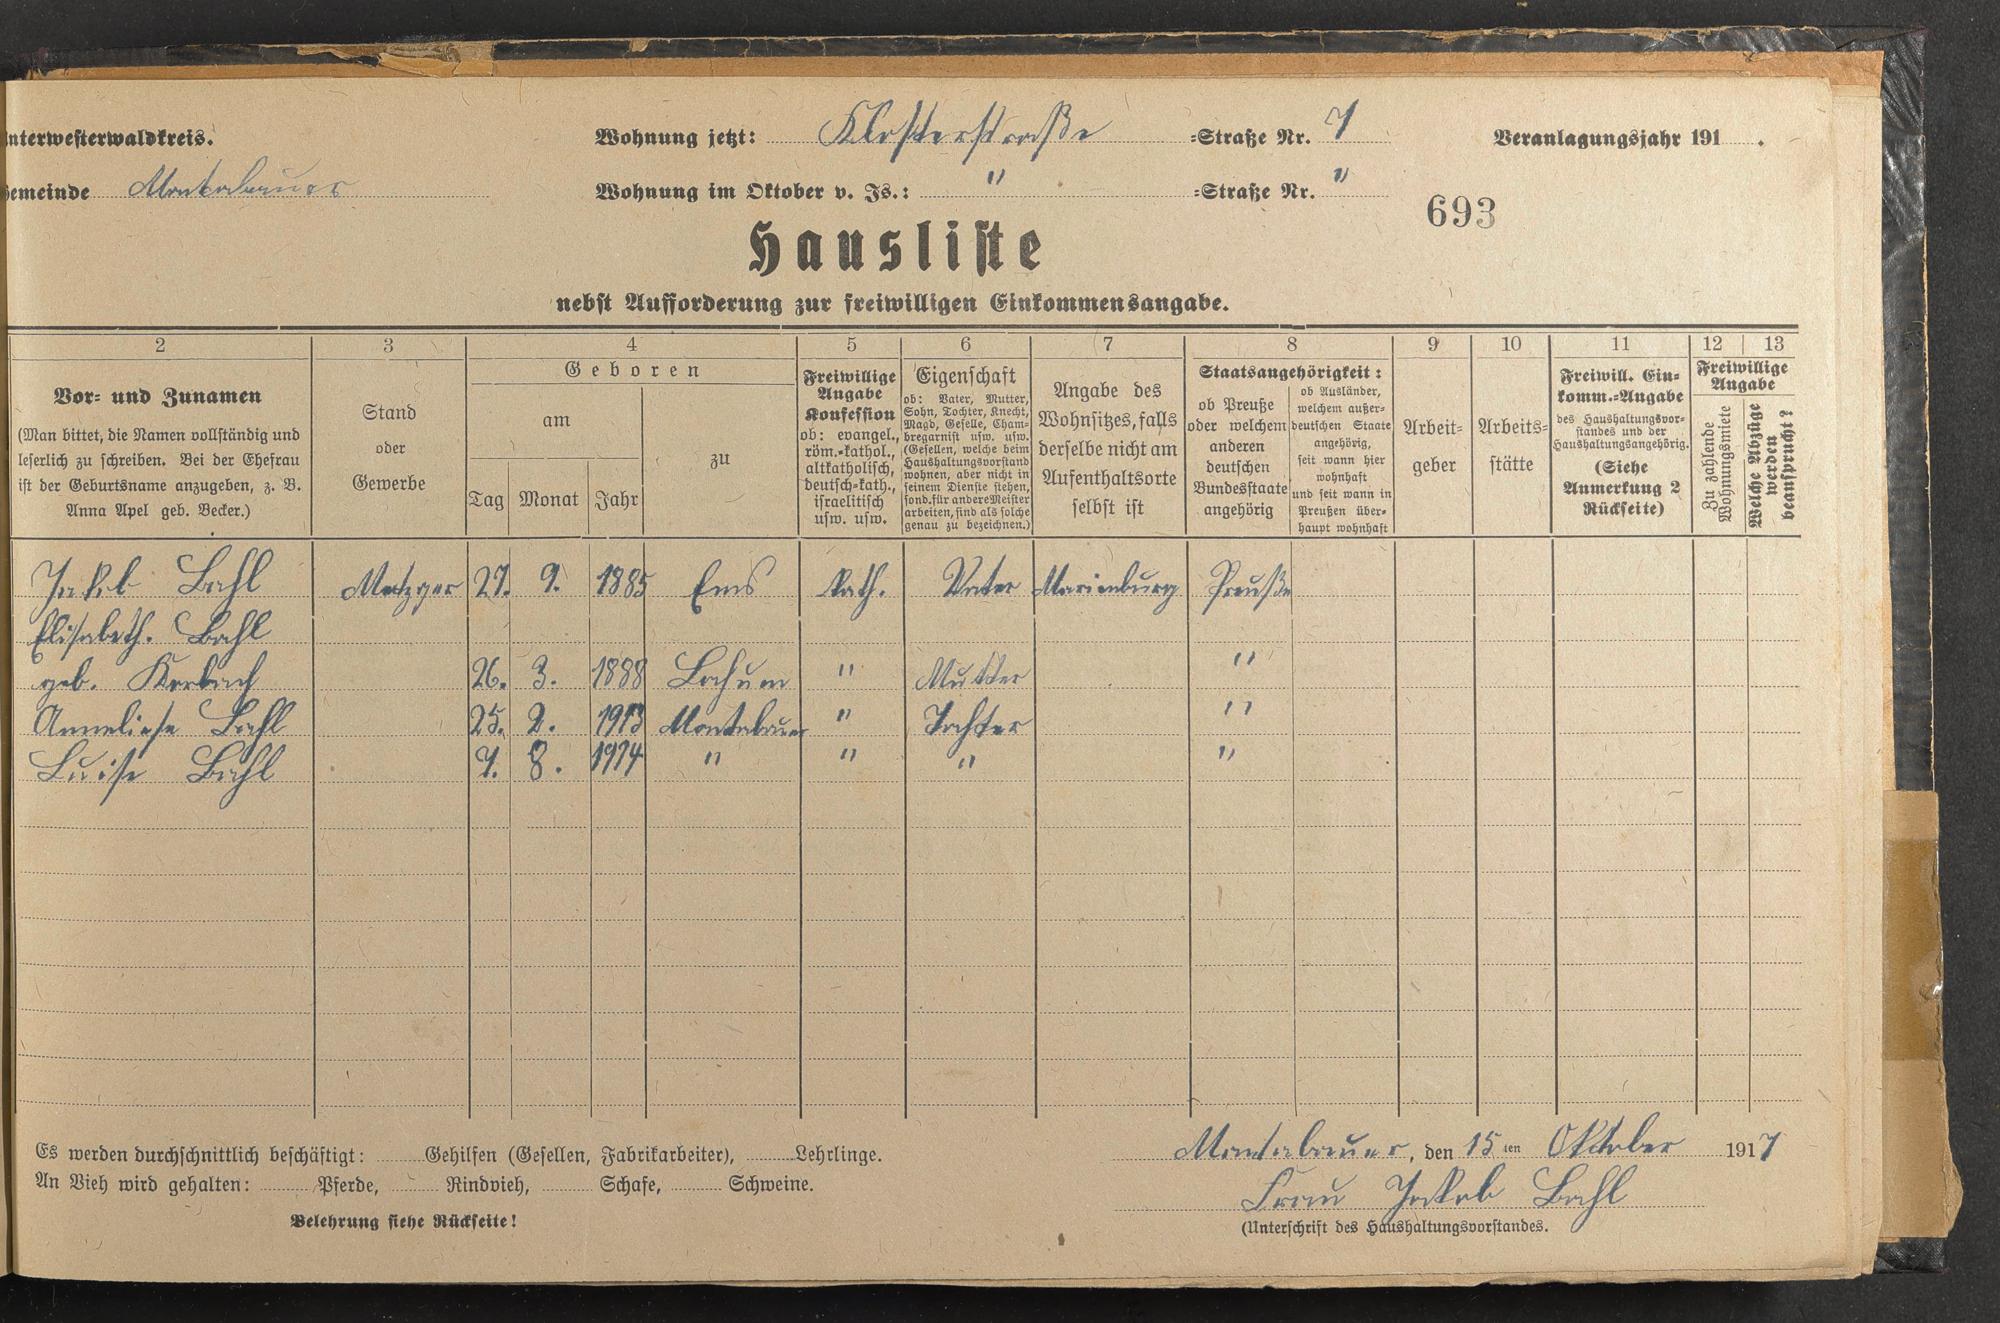 nterwesterwaldkreis.
Wohnung jetzt: Klosterstraße =Straße Nr. 7
Veranlagungsjahr 191 .
emeinde Montabaur
Wohnung im Oktober v. Js.: " =Straße Nr. "
693
Hausliste
nebst Aufforderung zur freiwilligen Einkommensangabe.
2 3 4 5 6 7 8 9 10 11 12 13
Vor= und Zunamen
(Man bittet, die Namen vollständig und
leserlich zu schreiben. Bei der Ehefrau
ist der Geburtsname anzugeben, z. B.
Anna Apel geb. Becker.)
Stand
oder
Gewerbe
Geboren
am
Tag Monat Jahr
zu
Freiwillige
Angabe
Konfession
ob: evangel.,
röm.=kathol.,
altkatholisch,
deutsch=kath.,
israelitisch
usw. usw.
Eigenschaft
ob: Vater, Mutter,
Sohn, Tochter, Knecht,
Magd, Geselle, Cham=
bregarnist usw. usw.
(Gesellen, welche beim
Haushaltungsvorstand
wohnen, aber nicht in
seinem Dienste stehen,
sond. für andere Meister
arbeiten, sind als solche
genau zu bezeichnen.)
Angabe des
Wohnsitzes, falls
derselbe nicht am
Aufenthaltsorte
selbst ist
Staatsangehörigkeit:
ob Preuße
oder welchem
anderen
deutschen
Bundesstaate
angehörig
ob Ausländer,
welchem außer=
deutschen Staate
angehörig,
seit wann hier
wohnhaft
und seit wann in
Preußen über=
haupt wohnhaft
Arbeit=
geber
Arbeits=
stätte
Freiwill. Ein=
komm.=Angabe
des Haushaltungsvor=
standes und der
Haushaltungsangehörig.
(Siehe
Anmerkung 2
Rückseite)
Freiwillige
Angabe
Zu zahlende
Wohnungsmiete
Welche Abzüge
werden
beansprucht?
Jakob Bahl Metzger 27. 9. 1885 Ems kath. Vater Marienburg Preuße
Elisabeth. Bahl
geb. Korbach 26. 3. 1888 Bochum " Mutter "
Anneliese Bahl 25. 2. 1913 Montabaur " Tochter "
Luise Bahl 7. 8. 1914 " " " "
Es werden durchschnittlich beschäftigt: Gehilfen (Gesellen, Fabrikarbeiter), Lehrlinge.
An Vieh wird gehalten: Pferde, Rindvieh, Schafe, Schweine.
Belehrung siehe Rückseite!
Montabaur, den 15 ten Oktober 1917
Frau Jakob Bahl
(Unterschrift des Haushaltungsvorstandes.